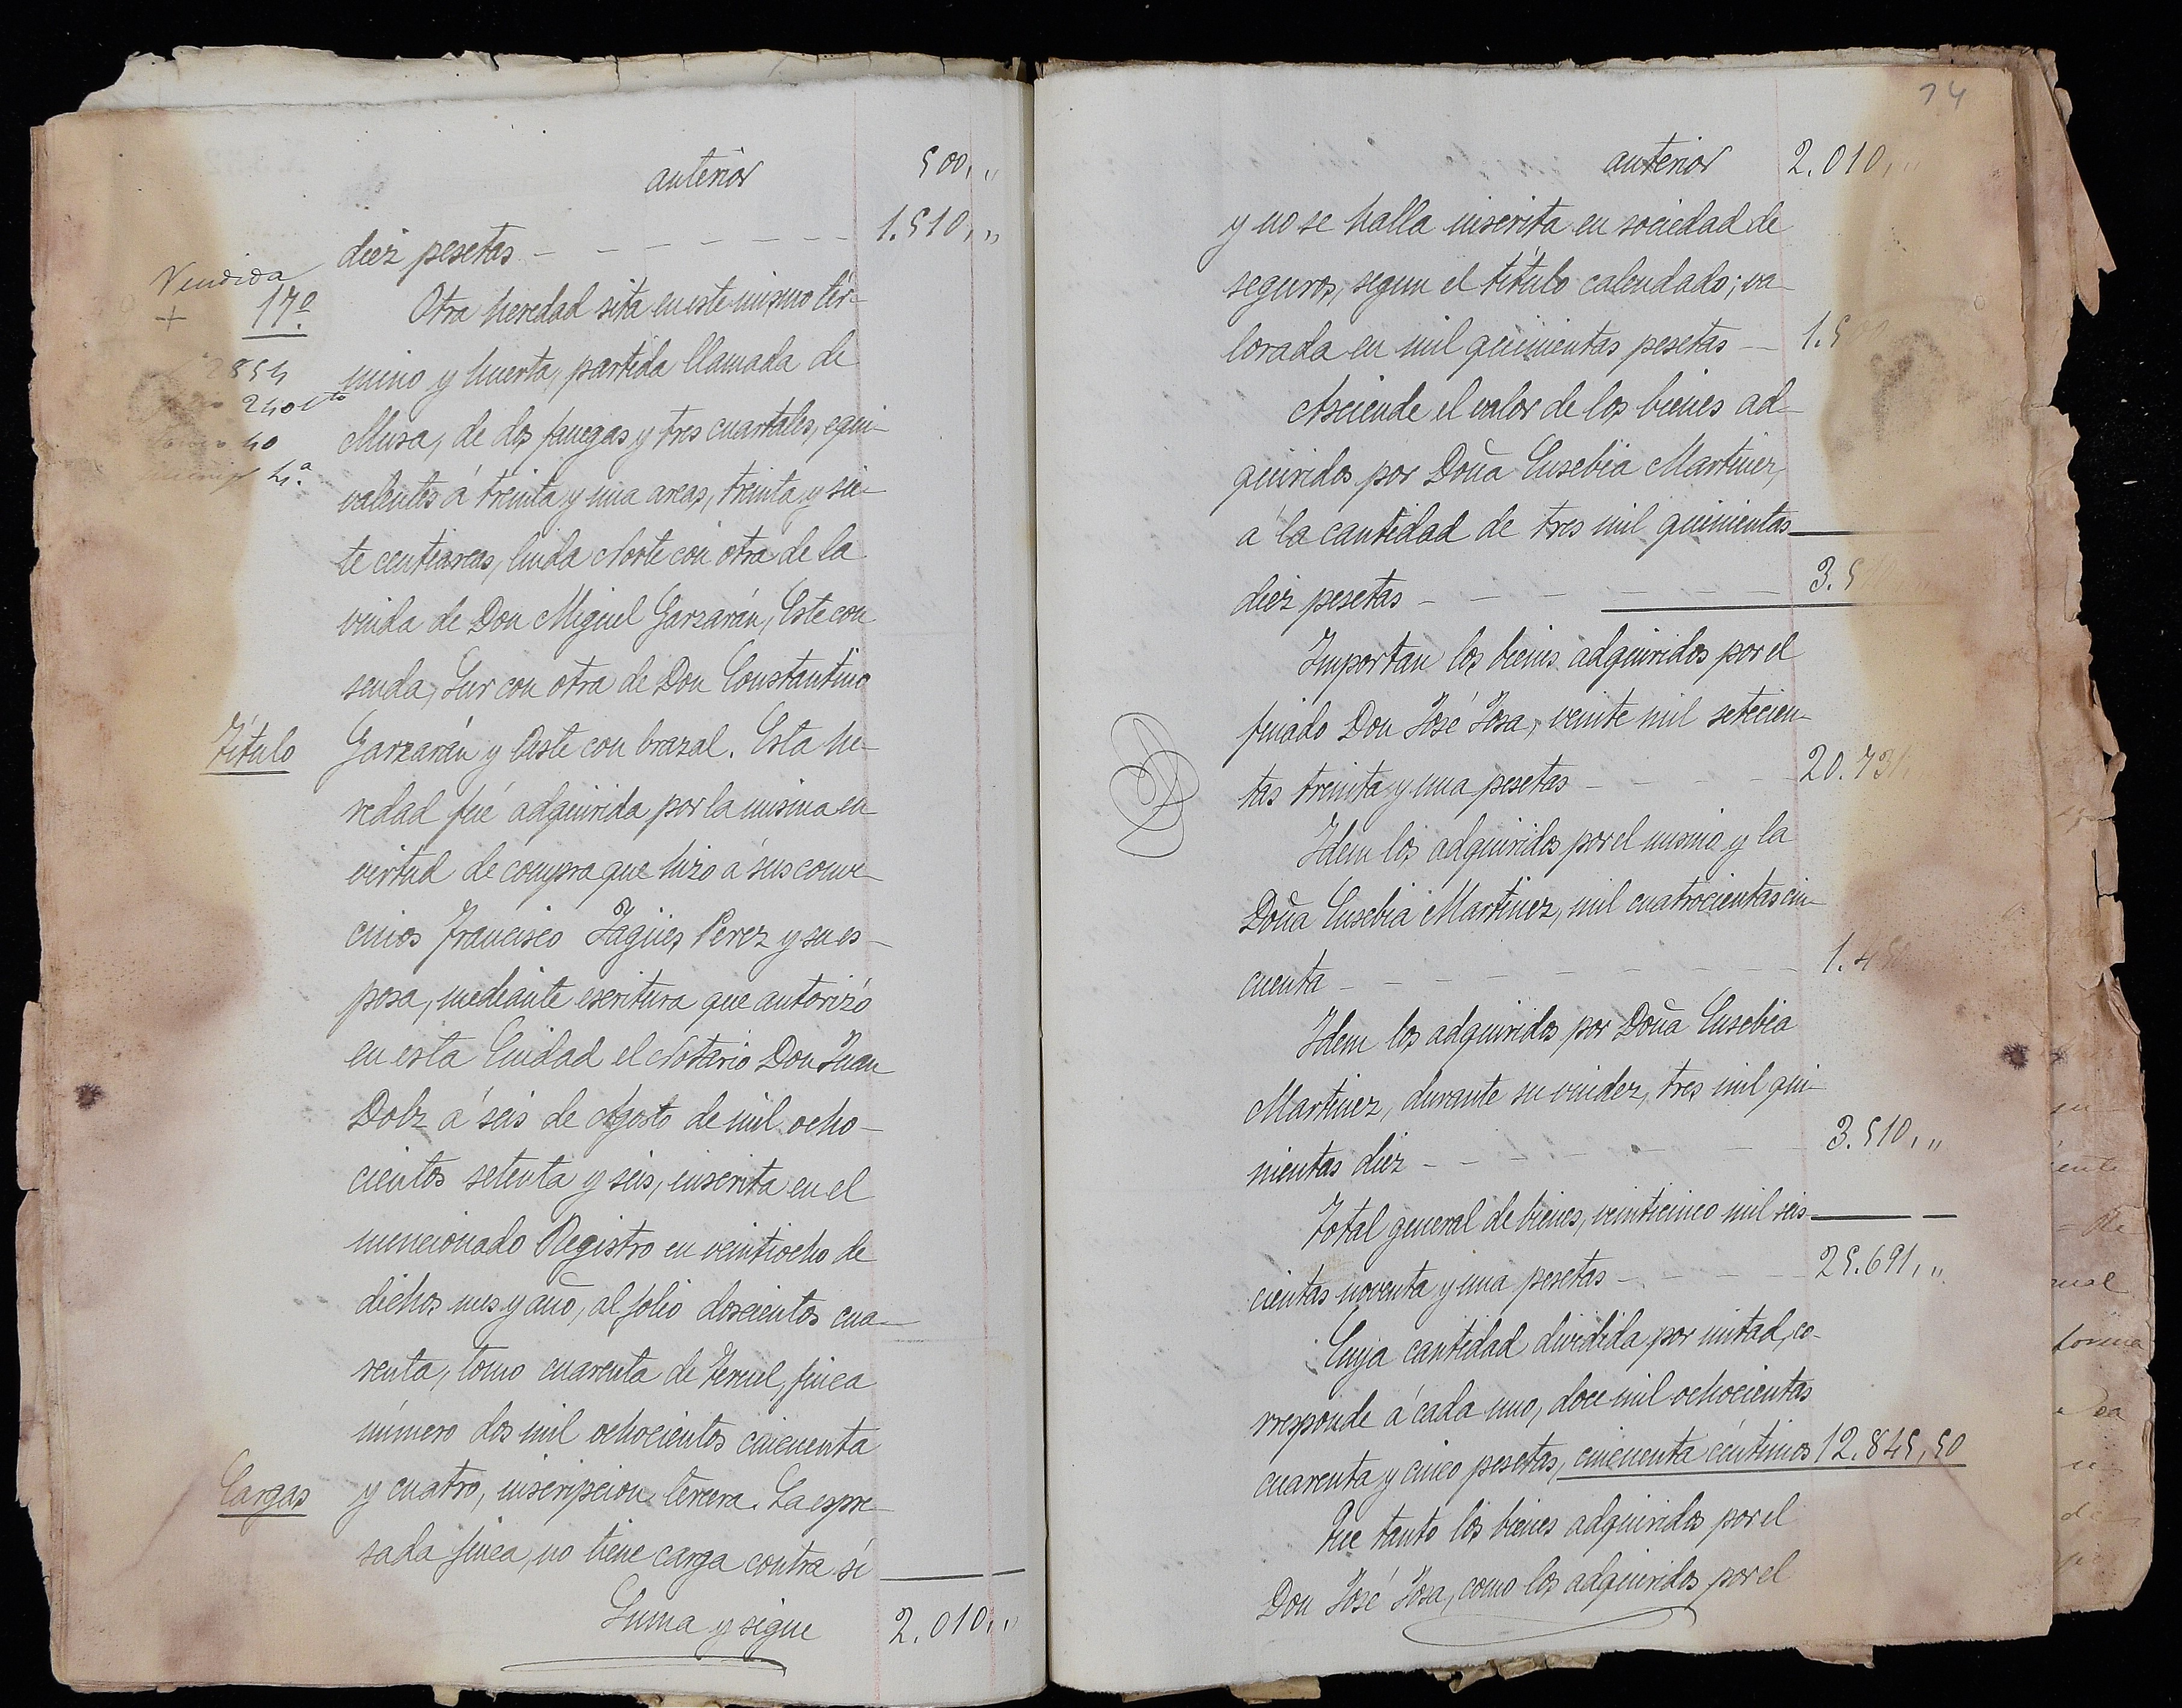 anterior 500,,,
diez pesetas - - - - - - - 1.510,,,
Vendida
+ 17º
Otra heredad sita en este mismo tér-
2854
mino y huerta, partida llamada de
240 vto
Musa, de dos fanegas y tres cuartales, equi-
tomo 40
valentes á treinta y una areas, treinta y sie-
4.ª
te centiareas, linda Norte con otra de la
viuda de Don Miguel Garzarán, Este con
senda, Sur con otra de Don Constantino
Título
Garzarán y Oeste con brazal. Esta he-
redad fué adquirida por la misma en
virtud de compra que hizo á sus conve-
cinos Francisco Yagües Perez y su es-
posa, mediante escritura que autorizó
en esta Ciudad el Notario Don Juan
Dolz á seis de Agosto de mil ocho-
cientos setenta y seis, inscrita en el
mencionado Registro en veintiocho de
dichos mes y año, al folio doscientos cua-
renta, tomo cuarenta de Teruel, finca
número dos mil ochocientos cincuenta
Cargas
y cuatro, inscripcion tercera. La espre-
sada finca, no tiene carga contra sí
Suma y sigue 2.010,,,
14
anterior 2.010,,,
y no se halla inscrita en sociedad de
seguros, segun el título calendado; va-
lorada en mil quinientas pesetas — 1.500
Asciende el valor de los bienes ad-
quiridos por Doña Eusebia Martinez,
á la cantidad de tres mil quinientas
diez pesetas - - - - - - - 3.510
Importan los bienes adquiridos por el
finado Don José Josa, veinte mil setecien-
tas treinta y una pesetas - - - 20.731,
Idem los adquiridos por el mismo y la
Doña Eusebia Martinez, mil cuatrocientas cin-
cuenta - - - - - - - - 1.450
Idem los adquiridos por Doña Eusebia
Martinez, durante su viudez, tres mil qui-
nientas diez - - - - - - - 3.510,,,
Total general de bienes, veinticinco mil seis-
cientas noventa y una pesetas - - - - 25.691,,,
Cuya cantidad dividida por mitad, co-
rresponde á cada uno, doce mil ochocientas
cuarenta y cinco pesetas, cincuenta céntimos 12.845,50
Que tanto los bienes adquiridos por el
Don José Josa, como los adquiridos por el